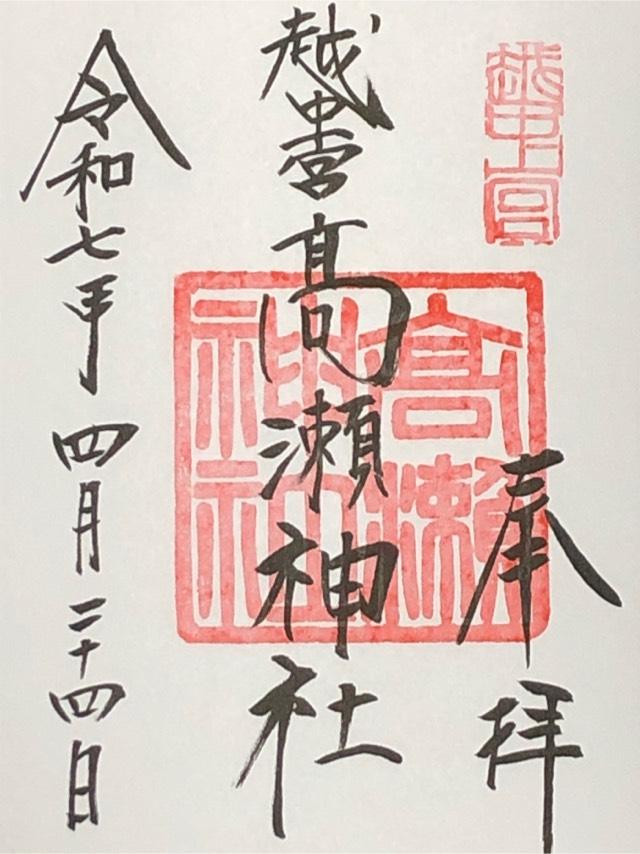 越中一宮
奉拝
越中一宮高瀬神社
高瀬神社
令和七年四月二十四日